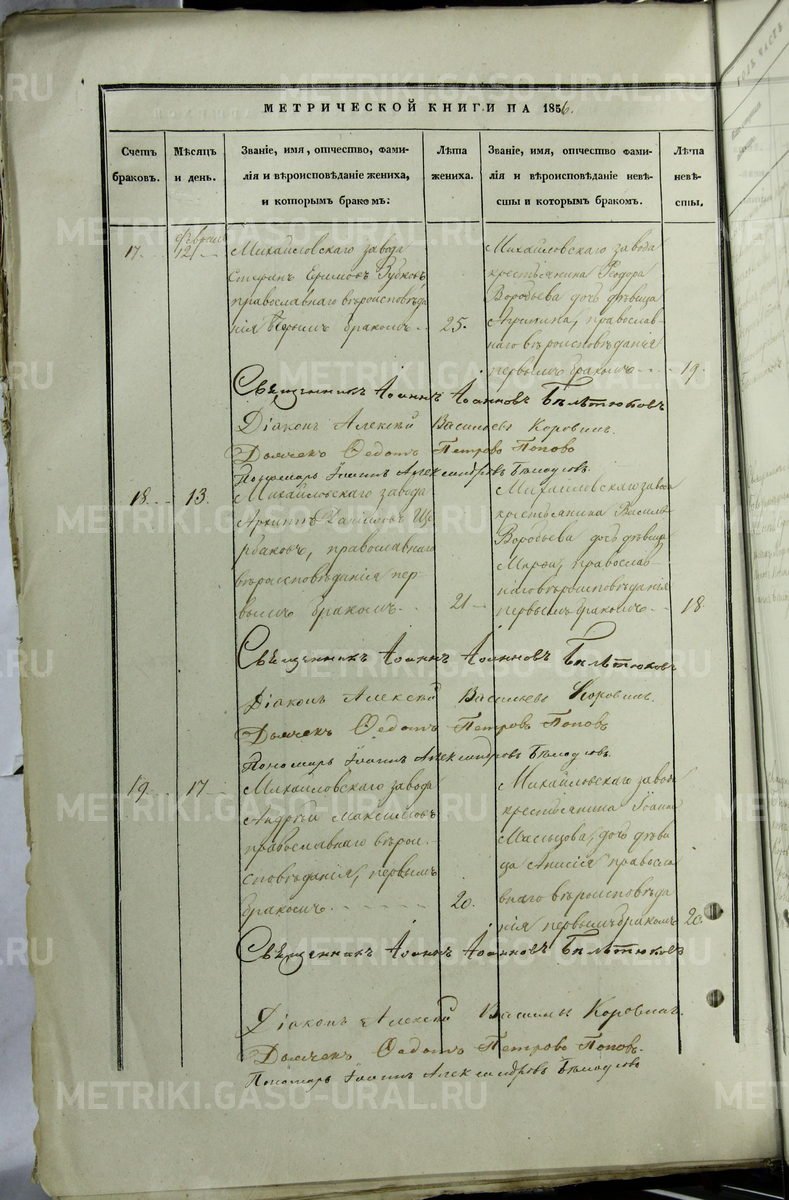 МЕТРИЧЕСКОЙ КНИГИ НА 1856.
Счетъ браковъ.
Мѣсяцъ и день.
Званіе, имя, отчество, фами-
лія и вѣроисповѣданіе жениха,
и которымъ бракомъ:
Лѣта жениха.
Званіе, имя, отчество фами-
лія и вѣроисповѣданіе невѣ-
сты и которымъ бракомъ.
Лѣта невѣ-
сты.
17.
Февраля
12
Михайловскаго завода
Стефанъ Ефимовъ Зубковъ,
православнаго вѣроисповѣда
нія первымъ бракомъ
25.
Михайловскаго завода
крестьянина Ѳеодора
Воробьева дочь дѣвица
православ-
наго вѣроисповѣданія
первымъ бракомъ
19.
Священникъ Іоаннъ Іоанновъ Билѣтюковъ
Діаконъ Алексѣй Васильевъ Коровинъ.
Дьячекъ Ѳедотъ Петровъ Поповъ
Пономарь Іоаннъ Александровъ
18.
13.
Михайловскаго завода
Архиппъ Даниловъ Ще
рбаковъ, православнаго
вѣроисповѣданія пер-
вымъ бракомъ
21
Михайловскаго завод
крестьянина Василья
Воробьева дочь дѣвица
Марѳа, православ-
наго вѣроисповѣданія
первымъ бракомъ
18.
Священникъ Іоаннъ Іоанновъ Билѣтюковъ
Діаконъ Алексѣй Васильевъ Коровинъ.
Дьячекъ Ѳедотъ Петровъ Поповъ
Пономарь Іоаннъ Александровъ
19.
17.
Михайловскаго завода
Андрей Максимовъ
православнаго вѣрои-
сповѣданія, первымъ
бракомъ
20.
Михайловскаго завода
крестьянина Іоанна
дочь дѣви
ца Анисія правосла
внаго вѣроисповѣда
нія первымъ бракомъ
20.
Священникъ Іоаннъ Іоанновъ Билѣтюковъ
Діаконъ Алексѣй Васильевъ Коровинъ.
Дьячекъ Ѳедотъ Петровъ Поповъ.
Пономарь Іоаннъ Александровъ
METRIKI.GASO-URAL.RU